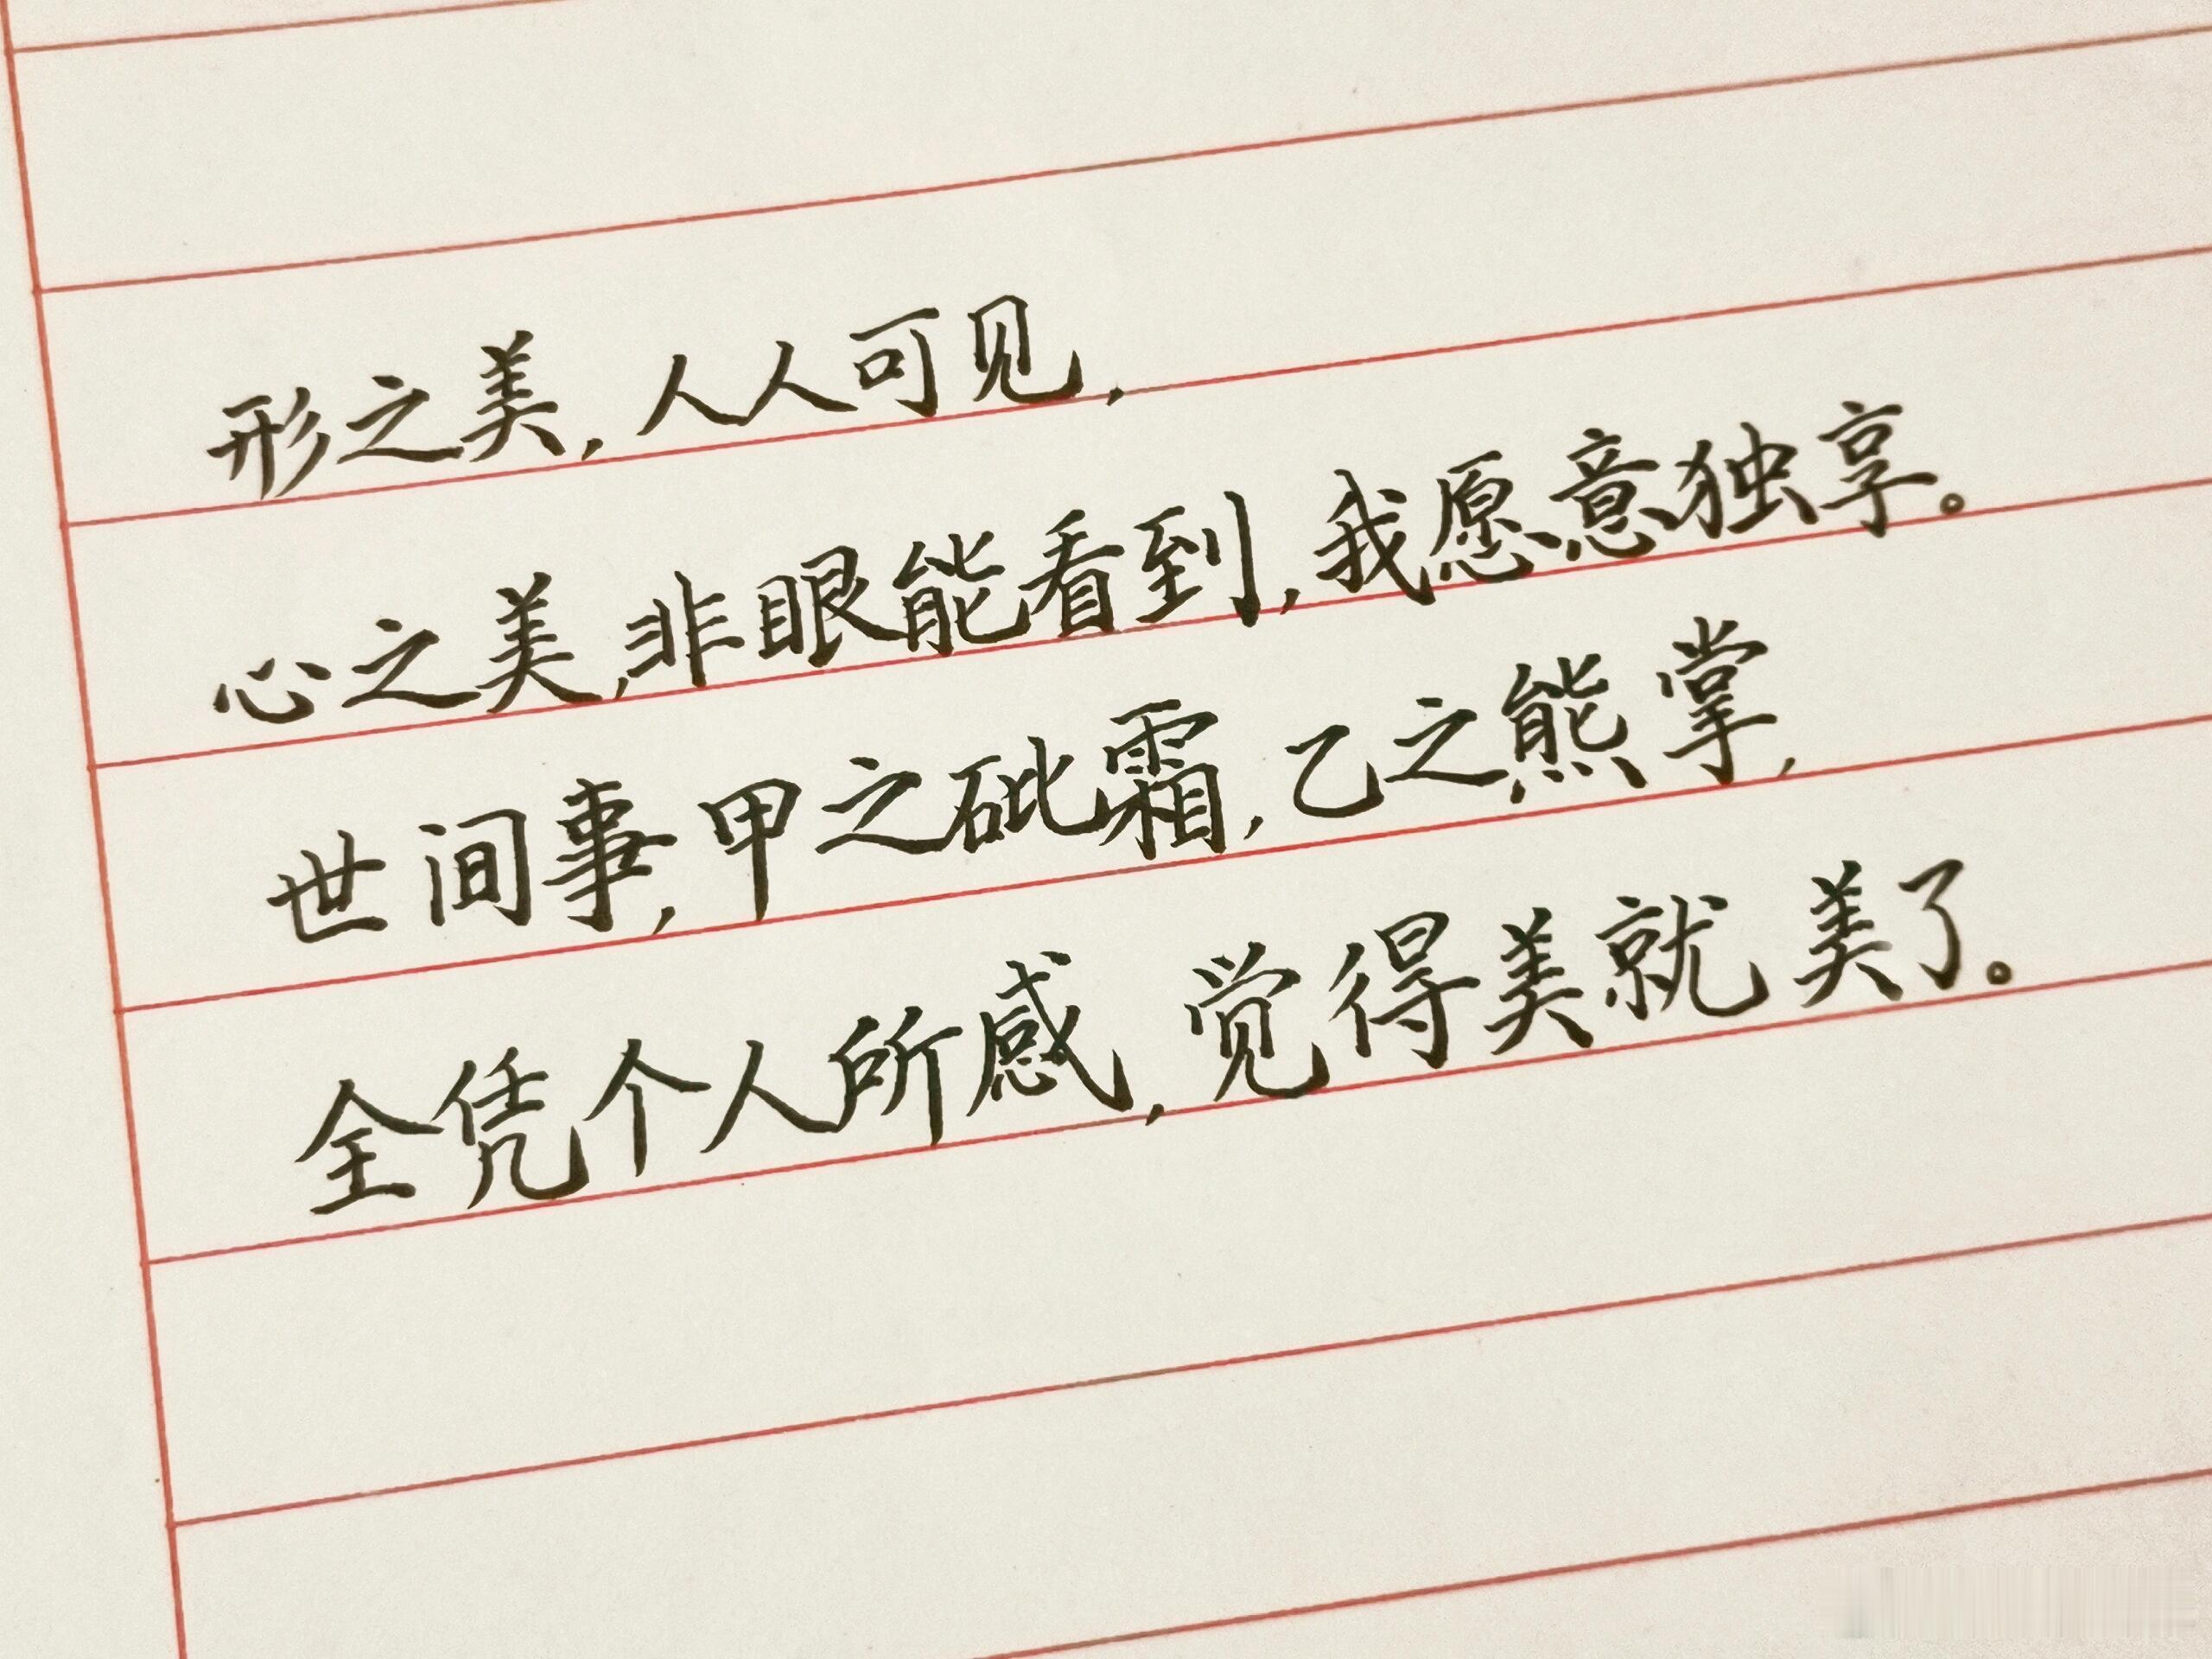 形之美,人人可见,
心之美,非眼能看到,我愿意独享。
世间事,甲之砒霜,乙之熊掌,
全凭个人所感,觉得美就美了。